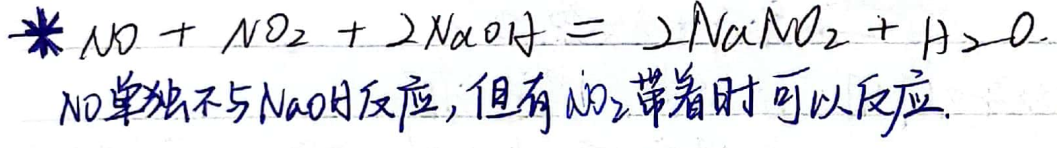 * NO + NO₂ + 2NaOH = 2NaNO₂ + H₂O.
NO单独不与NaOH反应,但有NO₂带着时可以反应.